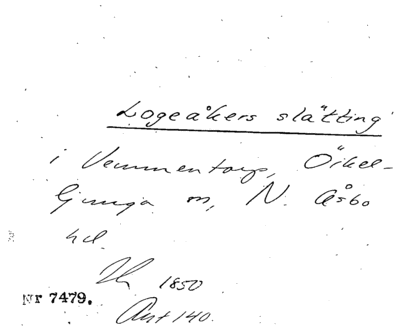 Logeåkers slätting
i Vemmentorp, Örkel-
ljunga sn, N. Åsbo
hd.
1850
Nr 7479.
Ant 140.